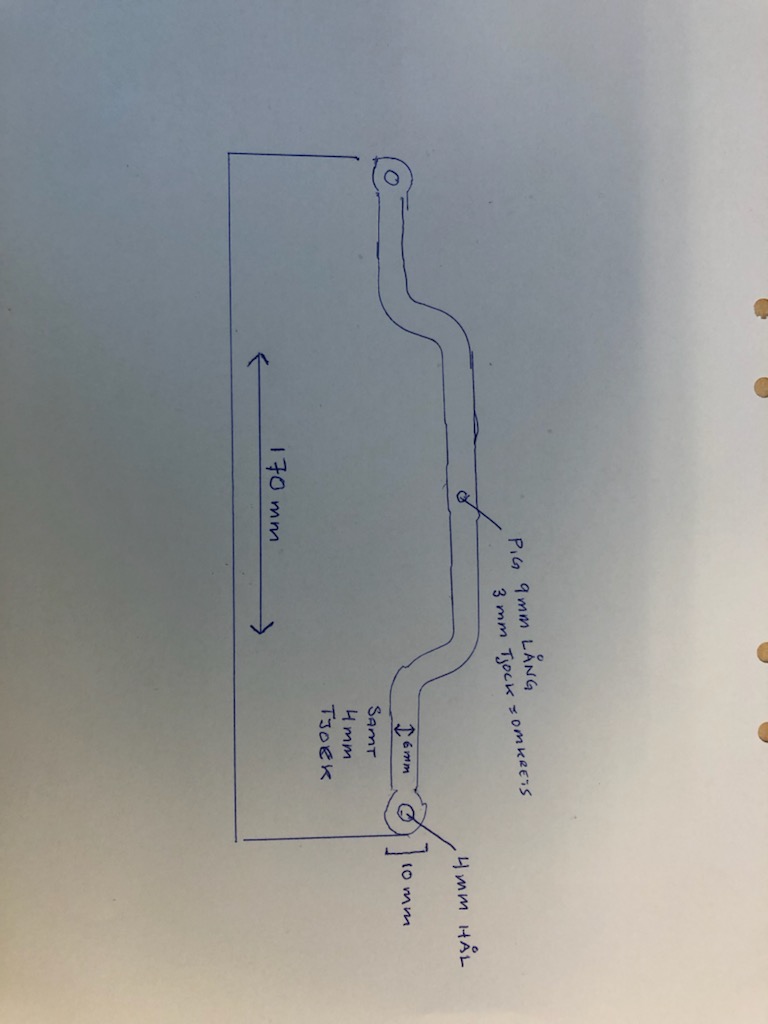 PIG 9mm LÅNG
3 mm TJOCK = OMKRETS
4mm HÅL
6mm
10 mm
SAMT
4mm
TJOCK
170 mm